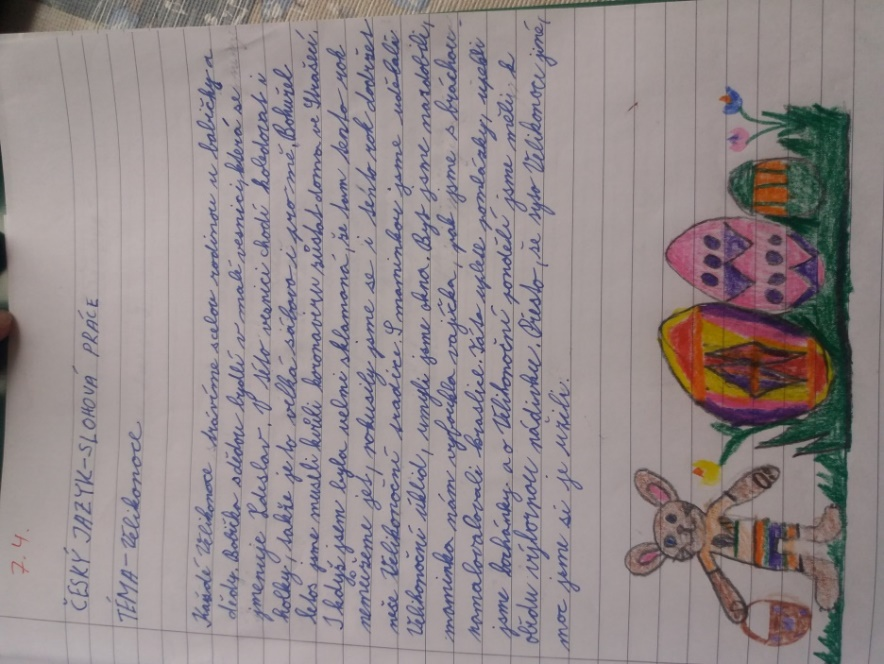 7.4.
ČESKÝ JAZYK-SLOHOVÁ PRÁCE
TÉMA-Velikonoce
Každé Velikonoce trávíme s celou rodinou u babičky a
dědy. Babička s dědou bydlí v malé vesnici, která se
jmenuje Zdeslav. V této vesnici chodí koledovat i
holky, takže je to velká zábava i pro mě. Bohužel
letos jsme museli kvůli koronaviru zůstat doma ve Strašicí.
I když jsem byla velmi sklamaná, že tam tento rok
nemůžeme jet, pokusily jsme se i tento rok dodržet
vše Velikonoční tradice. S maminkou jsme udělali
Velikonoční úklid, umyli jsme okna. Byt jsme nazdobili,
maminka nám vyfoukla vajíčka, pak jsme s bráchou
namalovali kraslice. Táta upletl pomlázky, upekli
jsme bochánky a o Velikonoční pondělí jsme měli k
obědu výbornou nádivku. Přesto, že tyto Velikonoce jiné,
moc jsme si je užili.